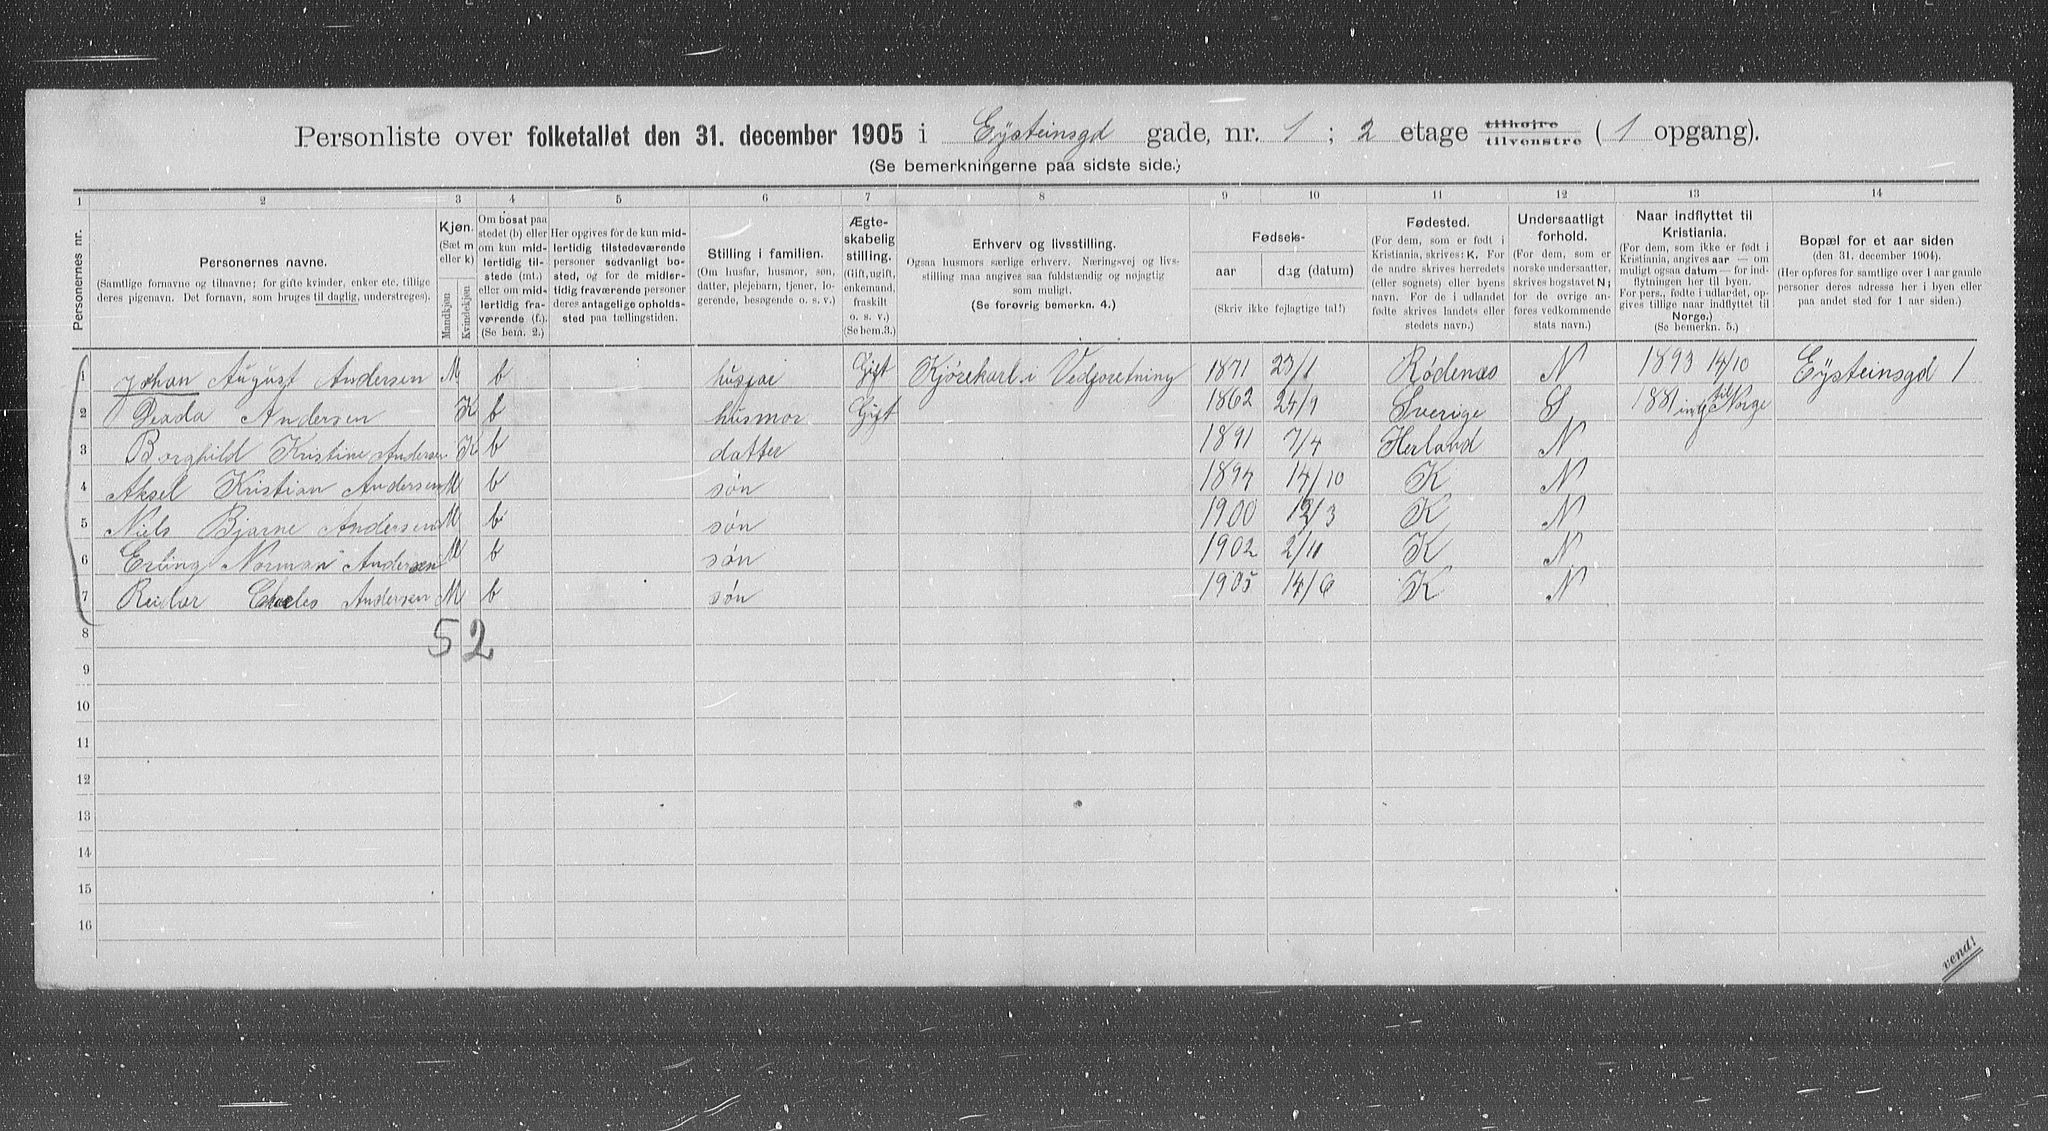 Personliste over folketallet den 31. december 1905 i Eysteinsgd gade, nr. 1 ; 2 etage tilhøjre tilvenstre ( 1 opgang).
(Se bemerkningerne paa sidste side.)
1 2 3 4 5 6 7 8 9 10 11 12 13 14
Personernes nr.
Personernes navne.
(Samtlige fornavne og tilnavne; for gifte kvinder, enker etc. tillige
deres pigenavn. Det fornavn, som bruges til daglig, understreges).
Kjøn.
(Sæt m
eller k)
Mandkjøn
Kvindekjøn
Om bosat paa
stedet (b) eller
om kun mid-
lertidig til-
stede (mt.)
eller om mid-
lertidig fra-
værende (f.).
(Se bem. 2.)
Her opgives for de kun mid-
lertidig tilstedeværende
personer sedvanligt bo-
sted, og for de midler-
tidig fraværende personer
deres antagelige opholds-
sted paa tællingstiden.
Stilling i familien.
(Om husfar, husmor, søn,
datter, plejebarn, tjener, lo-
gerende, besøgende o. s. v.)
Ægte-
skabelig
stilling.
(Gift, ugift,
enkemand,
fraskilt
o. s. v.)
(Se bem.3.)
Erhverv og livsstilling.
Ogsaa husmors særlige erhverv. Næringsvej og livs-
stilling maa angives saa fuldstændig og nøjagtig
som muligt.
(Se forøvrig bemerkn. 4.)
Fødsels-
aar
dag (datum)
(Skriv ikke fejlagtige tal!)
Fødested.
(For dem, som er født i
Kristiania, skrives: K. For
de andre skrives herredets
(eller sognets) eller byens
navn. For de i udlandet
fødte skrives landets eller
stedets navn.)
Undersaatligt
forhold.
(For dem, som er
norske undersaatter,
skrives bogstavet N;
for de øvrige an-
føres vedkommende
stats navn.)
Naar indflyttet til
Kristiania.
(For dem, som ikke er født i
Kristiania, angives aar — om
muligt ogsaa datum — for ind-
flytningen her til byen.
For pers., fødte i udlandet, op-
gives tillige naar indflyttet til
Norge.)
(Se bemerkn. 5.)
Bopæl for et aar siden
(den 31. december 1904).
(Her opføres for samtlige over 1 aar gamle
personer deres adresse her i byen eller
paa andet sted for 1 aar siden.)
1 Johan August Andersen M b husfar Gift Kjørekarl i Vedforetning 1871 23/1 Rødenæs N 1893 14/10 Eysteinsgd 1
2 Andersen K b husmor Gift 1862 24/9 Sverige S 1881 indf til Norge
3 Borghild Kristine Andersen K b datter 1891 7/4 Herland N
4 Aksel Kristian Andersen M b søn 1894 14/10 K N
5 Niels Bjarne Andersen M b søn 1900 12/3 K N
6 Erling Norman Andersen M b søn 1902 2/11 K N
7 Reidar Charles Andersen M b søn 1905 14/6 K N
5 2
8
9
10
11
12
13
14
15
16
vend!